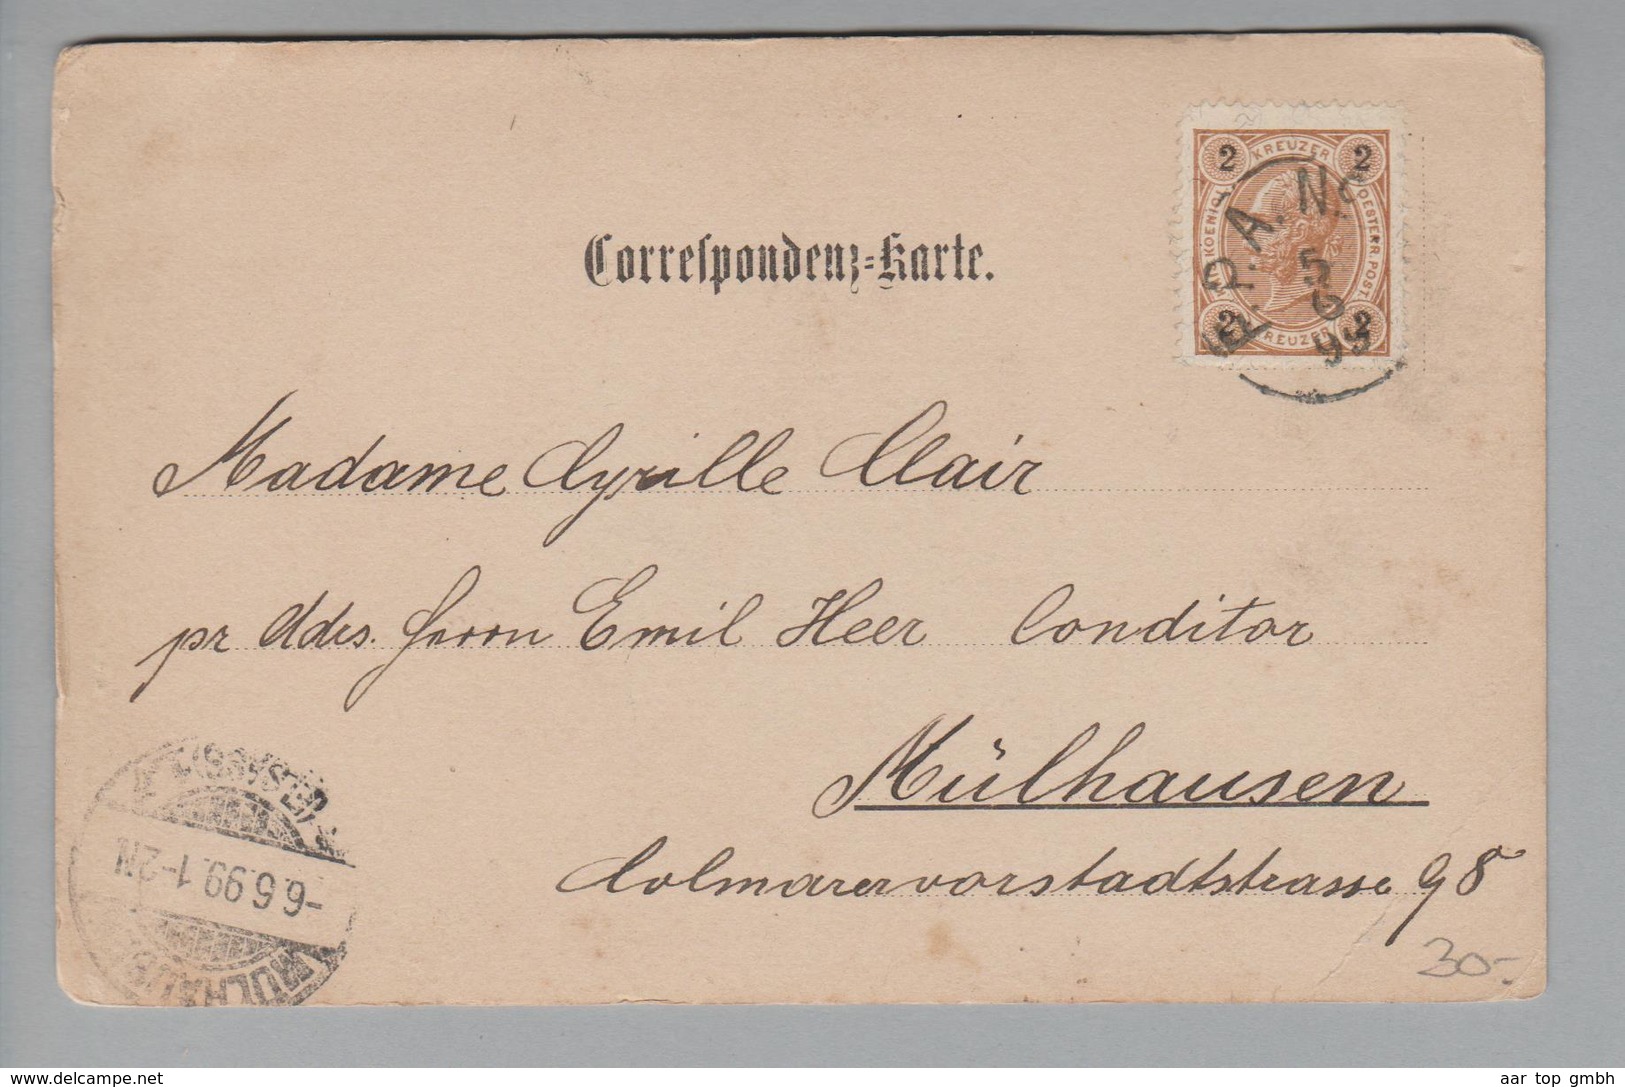 2 KREUZER 2
KOENIGL.
OESTERR. POST.
2 KREUZER 2
F.P.A. No
5
6
99
Correſpondenz-Karte.
Madame Cyrille Clair
pr Adrs. Herrn Emil Heer Conditor
Mülhausen
Colmarervorstadtstrasse 98
30-
(ELSASS)
-6.6.99.1-2N.
MÜLHAUSEN
www.delcampe.net
aar top gmbh